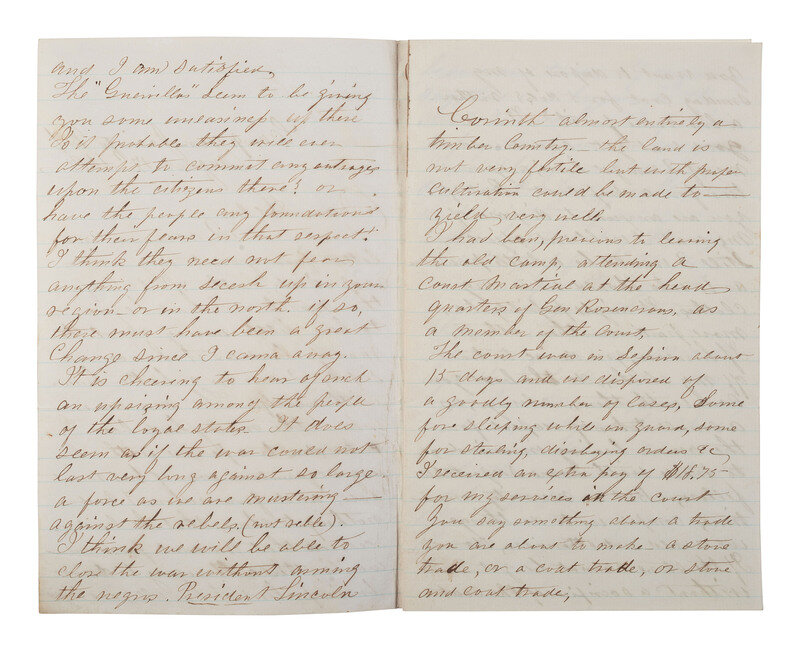 and I am satisfied,
The "Guerrillas" seem to be giving
you some uneasiness up there
Is it probable they will ever
attempt to commit any outrages
upon the citizens there? or
have the people any foundations
for their fears in that respect?
I think they need not fear
anything from secesh up in your
region or in the north. if so,
there must have been a great
change since I came away.
It is cheering to hear of such
an uprising among the people
of the loyal states. It does
seem as if the war could not
last very long against so large
a force as we are mustering
against the rebels. (not rebbe).
I think we will be able to
close the war without arming
the negros. President Lincoln
Corinth almost entirely a
timber Country. — the land is
not very fertile but with proper
cultivation could be made to
yield very well.
I had been, previous to leaving
the old camp, attending a
Court Martial at the head
quarters of Gen Rosencrans, as
a member of the Court,
The court was in Session about
15 days and we disposed of
a goodly number of cases, Some
for sleeping while on guard, some
for stealing, disobeying orders &c,
I received an extra pay of $18.75
for my services in the court
You say something about a trade
you are about to make a stove
trade, or a coat trade, or stove
and coat trade,